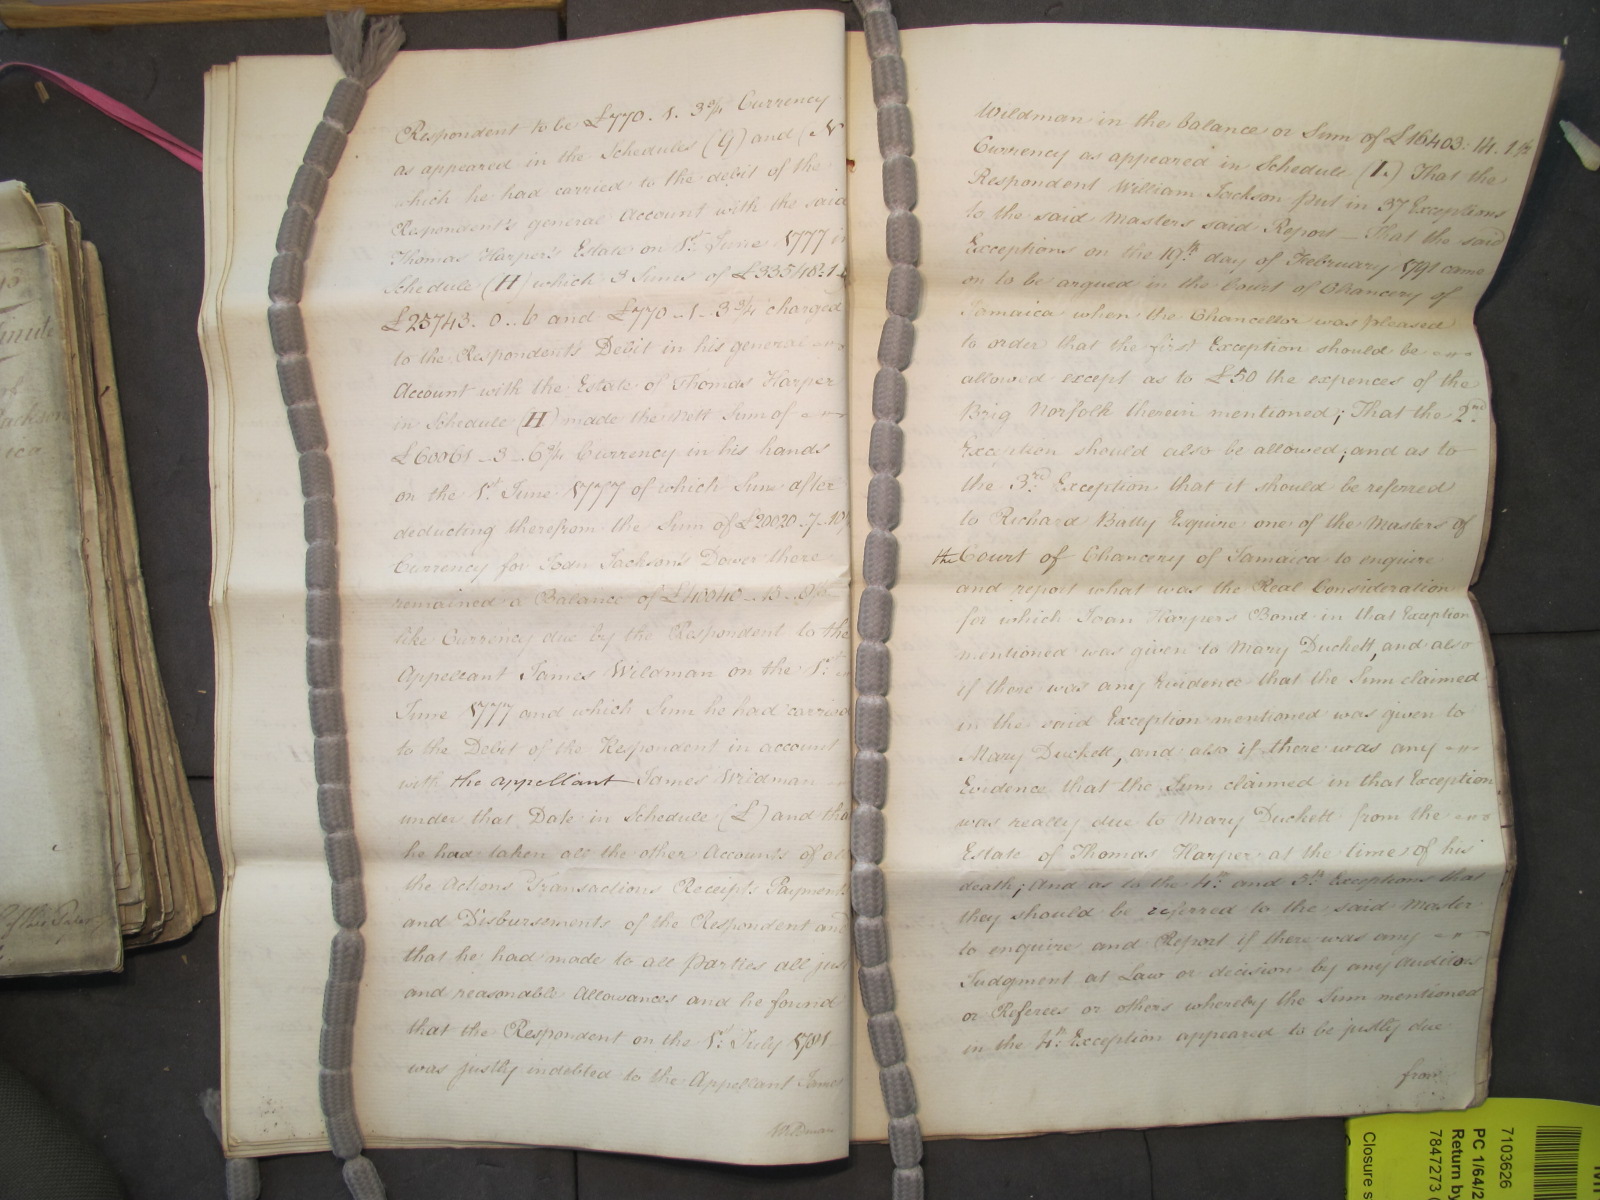 Respondent to be £770. 1. 3¾ Currency
as appeared in the Schedules (G) and (N
which he had carried to the debit of the
Respondent's general Account with the said
Thomas Harper's Estate on 1st. June 1777 in
Schedule (H) which 3 Sums of £33548. 1.
£25743. 0. 6 and £770 - 1 - 3¾ charged
to the Respondent's Debit in his general
Account with the Estate of Thomas Harper
in Schedule (H) made the Nett Sum of
£60061 - 3 - 6¾ Currency in his hands
on the 1st. June 1777 of which Sum after
deducting therefrom the Sum of £20020. 7. 10
Currency for Joan Jackson's Dower there
remained a Balance of £40040 - 15 -
like Currency due by the Respondent to the
Appellant James Wildman on the 1st.
June 1777 and which Sum he had carried
to the Debit of the Respondent in account
with the appellant James Wildman
under that Date in Schedule (L) and that
he had taken all the other Accounts of all
the Actions Transactions Receipts Payments
and Disbursements of the Respondent and
that he had made to all parties all just
and reasonable Allowances and he found
that the Respondent on the 1st. July 1791
was justly indebted to the Appellant James
Wildman
Wildman in the balance or Sum of £16403: 14. 1
Currency as appeared in Schedule (I.) That the
Respondent William Jackson put in 37 Exceptions
to the said Masters said Report - That the said
Exceptions on the 19th. day of February 1791 came
on to be argued in the Court of Chancery of
Jamaica when the Chancellor was pleased
to order that the first Exception should be
allowed except as to £50 the expences of the
Brig Norfolk therein mentioned; That the 2nd.
Exception should also be allowed; and as to
the 3rd. Exception that it should be referred
to Richard Batty Esquire one of the Masters of
the Court of Chancery of Jamaica to enquire
and report what was the Real Consideration
for which Joan Harpers Bond in that Exception
mentioned was given to Mary Duckett, and also
if there was any Evidence that the Sum claimed
in the said Exception mentioned was given to
Mary Duckett, and also if there was any
Evidence that the Sum claimed in that Exception
was really due to Mary Duckett from the
Estate of Thomas Harper at the time of his
death; And as to the 4th. and 5th. Exceptions that
they should be referred to the said Master
to enquire and Report if there was any
Judgment at Law or decision by any Auditors
or Referees or others whereby the Sum mentioned
in the 4th. Exception appeared to be justly due
from
7103626
PC 1/64/2
Return by
7847273
Closure s